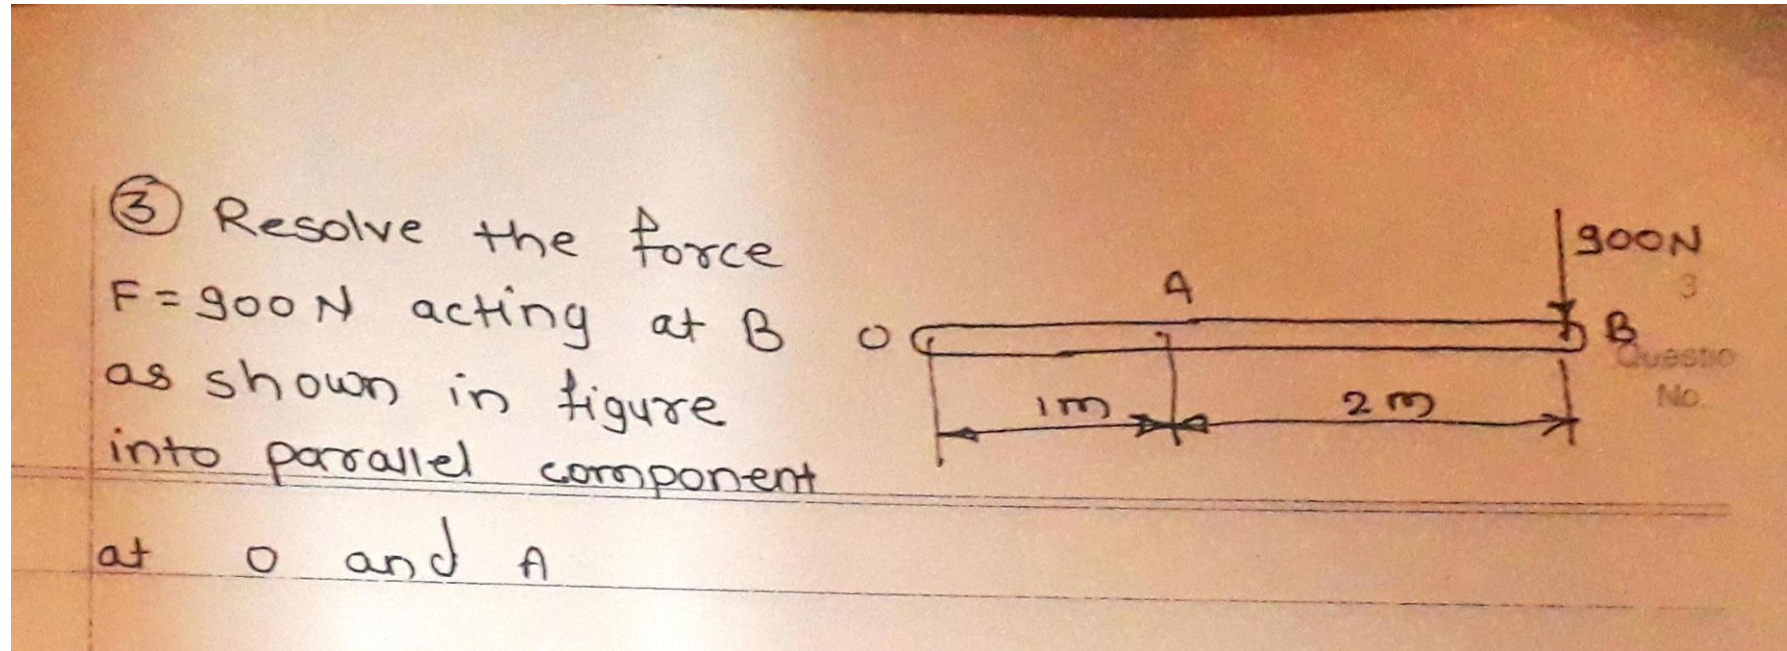 ③ Resolve the force
F = 900 N acting at B
as shown in figure
into parallel component
at O and A
900N
3
A
O
B
Questio
No.
1m
2m